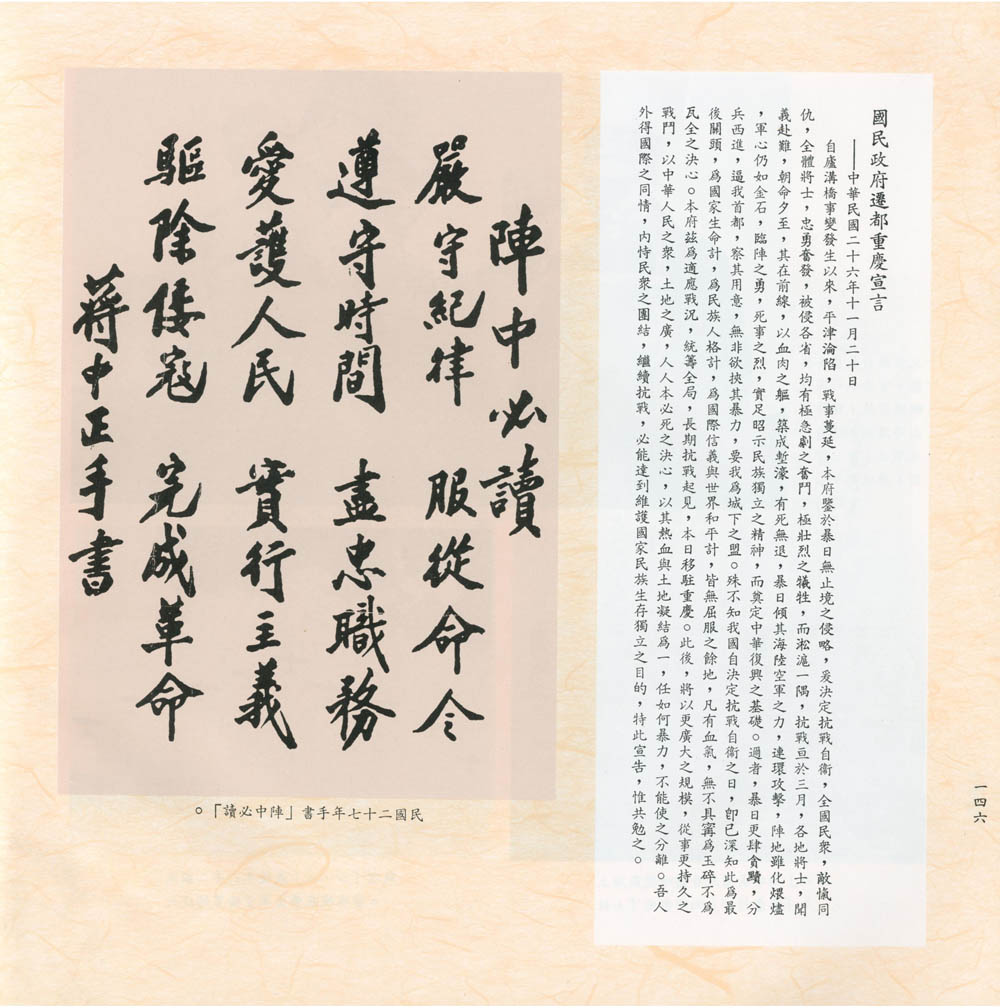 國民政府遷都重慶宣言
——中華民國二十六年十一月二十日
自廬溝橋事變發生以來，平津淪陷，戰事蔓延，本府鑒於暴日無止境之侵略，爰決定抗戰自衛，全國民衆，敵愾同
仇，全體將士，忠勇奮發，被侵各省，均有極急劇之奮鬥，極壯烈之犧牲，而淞滬一隅，抗戰亘於三月，各地將士，聞
義赴難，朝命夕至，其在前線，以血肉之軀，築成塹濠，有死無退，暴日傾其海陸空軍之力，連環攻擊，陣地雖化煨燼
，軍心仍如金石，臨陣之勇，死事之烈，實足昭示民族獨立之精神，而奠定中華復興之基礎。邇者，暴日更肆貪黷，分
兵西進，逼我首都，察其用意，無非欲挾其暴力，要我爲城下之盟。殊不知我國自決定抗戰自衛之日，卽已深知此爲最
後關頭，爲國家生命計，爲民族人格計，爲國際信義與世界和平計，皆無屈服之餘地，凡有血氣，無不具寗爲玉碎不爲
瓦全之決心。本府茲爲適應戰況，統籌全局，長期抗戰起見，本日移駐重慶。此後，將以更廣大之規模，從事更持久之
戰鬥，以中華人民之衆，土地之廣，人人本必死之決心，以其熱血與土地凝結爲一，任如何暴力，不能使之分離。吾人
外得國際之同情，內恃民衆之團結，繼續抗戰，必能達到維護國家民族生存獨立之目的，特此宣告，惟共勉之。
陣中必讀
嚴守紀律 服從命令
遵守時間 盡忠職務
愛護人民 實行主義
驅除倭寇 完成革命
蔣中正手書
民國二十七年手書「陣中必讀」。
一四六